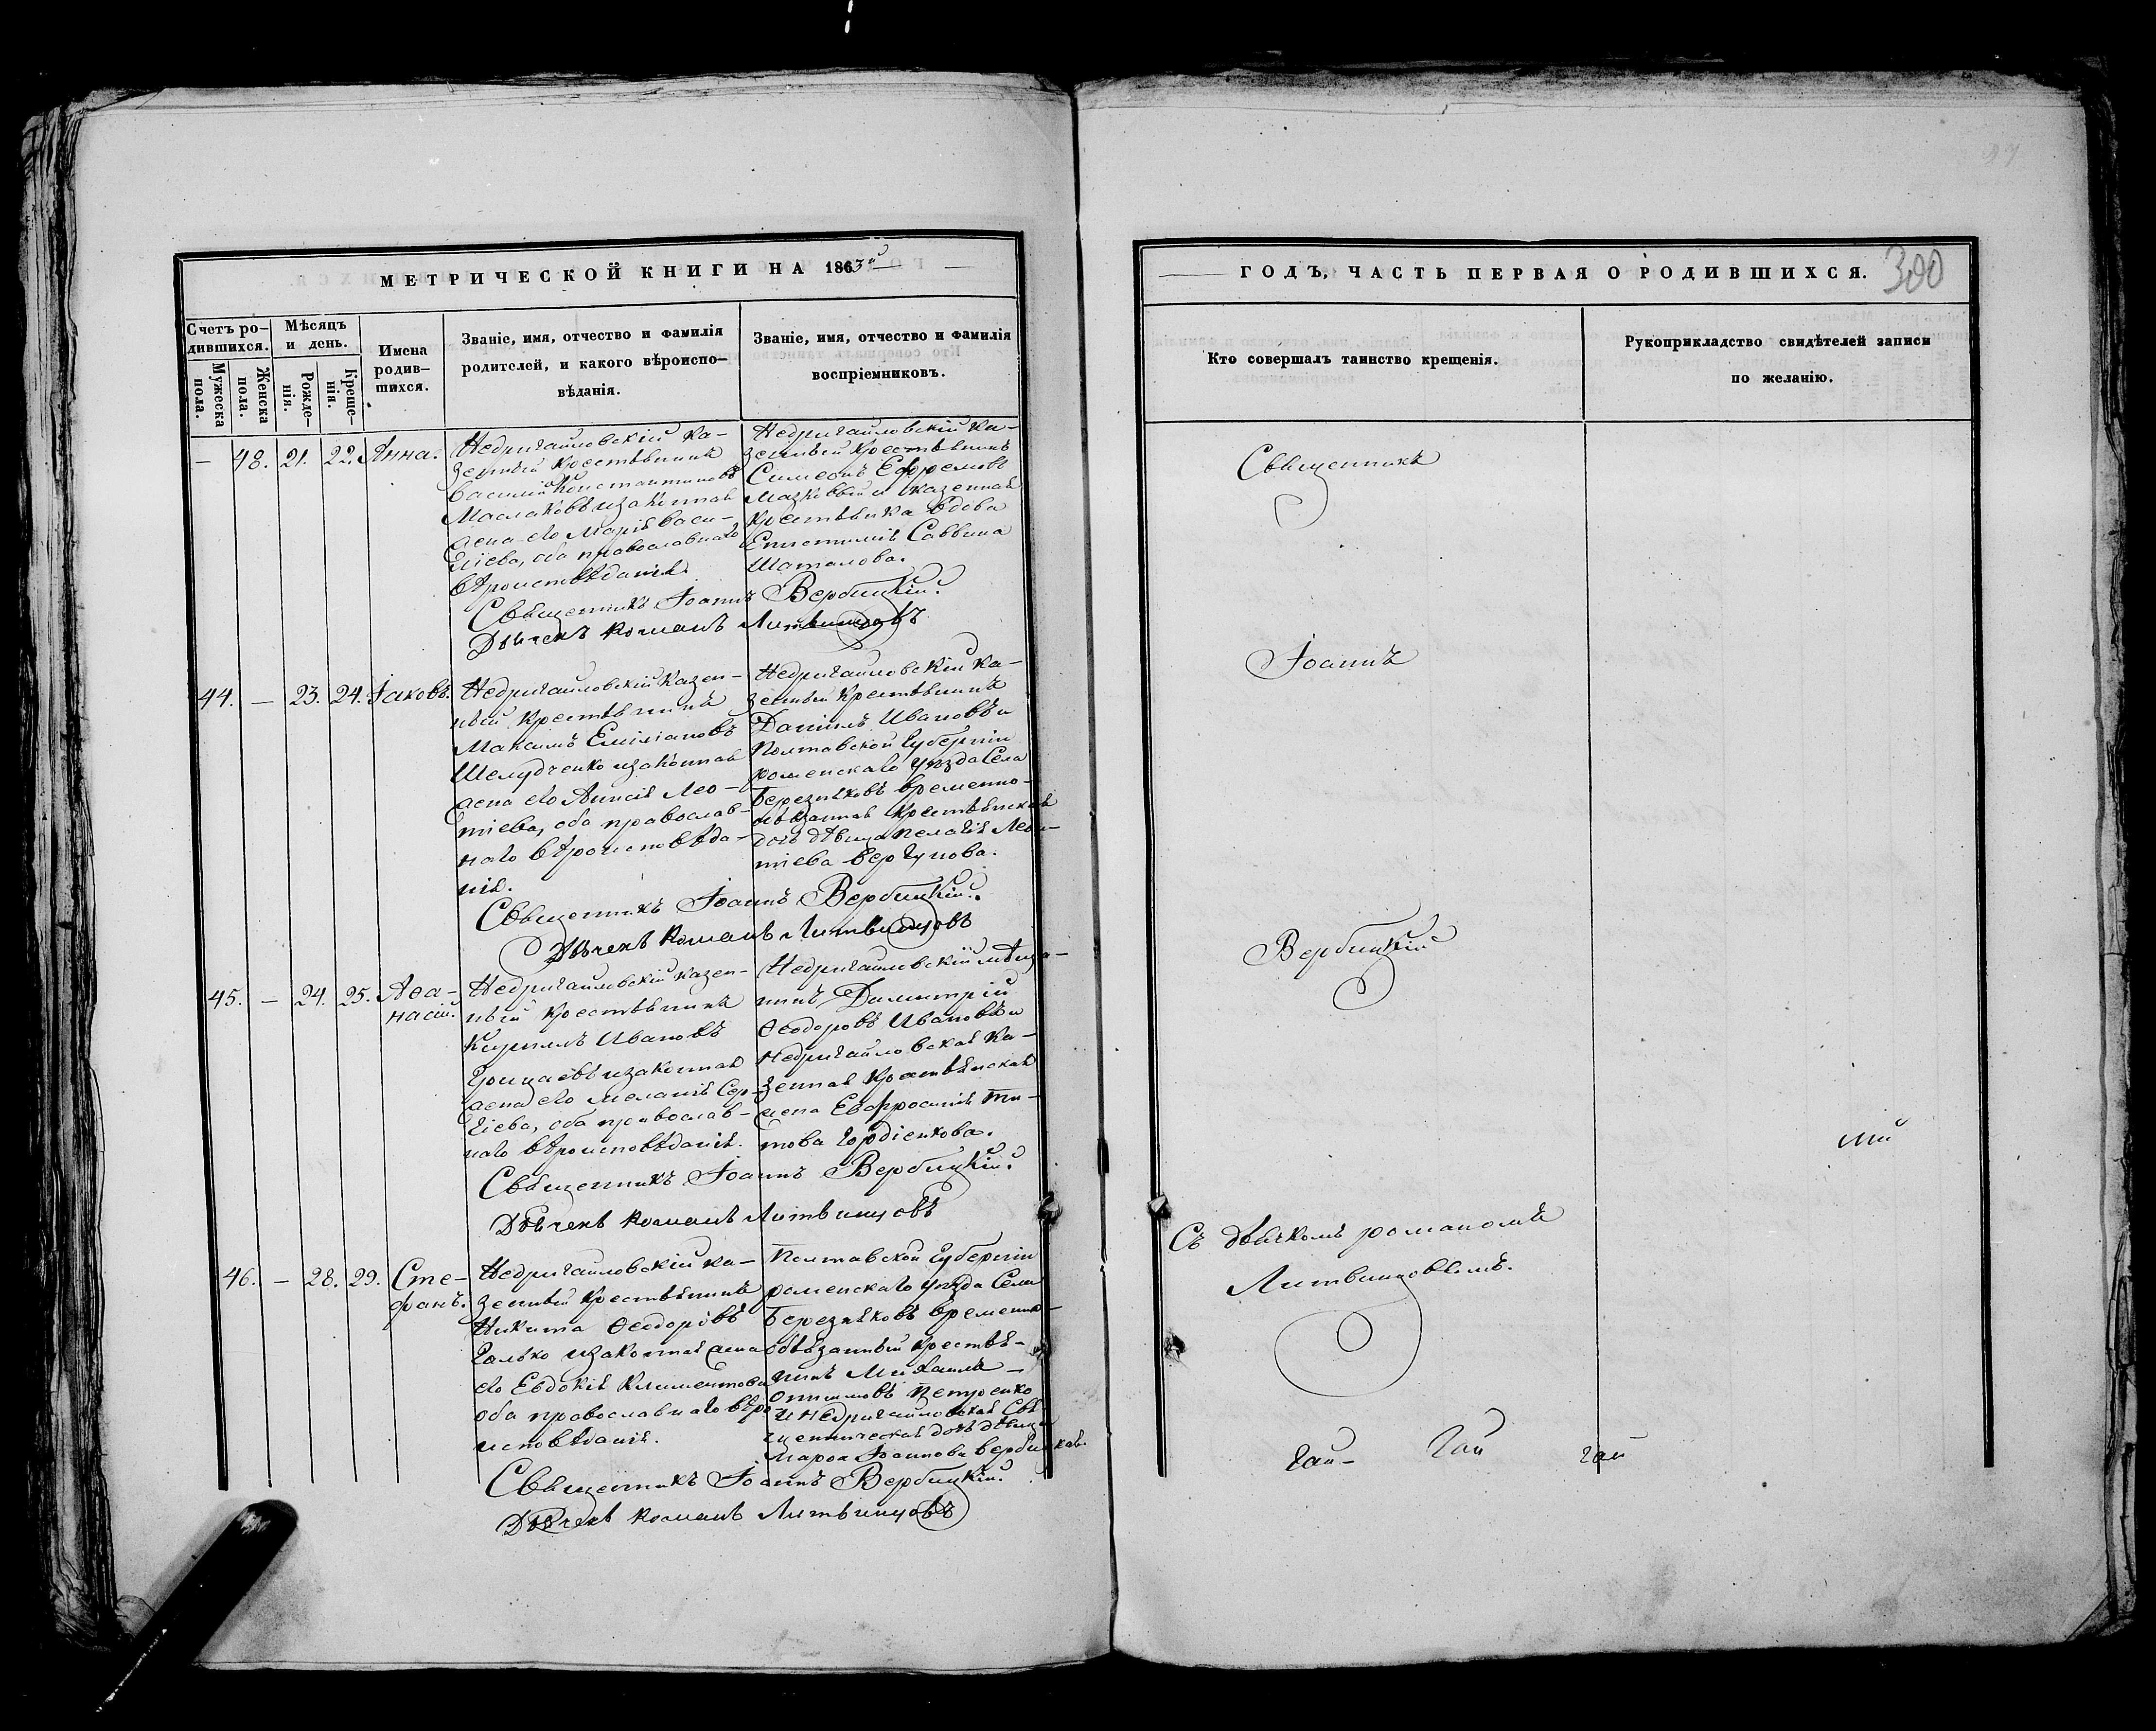 МЕТРИЧЕСКОЙ КНИГИ НА 1863й
Счетъ ро-
дившихся.
Мужеска
пола.
Женска
пола.
Мѣсяцъ
и день.
Рожде-
нія.
Креще-
нія.
Имена
родив-
шихся.
Званіе, имя, отчество и фамилія
родителей, и какого вѣроиспо-
вѣданія.
Званіе, имя, отчество и фамилія
воспріемниковъ.
— 48. 21. 22. Анна.
Недригайловскій ка-
зенный крестьянинъ
Василій Константиновъ
Маслаковъ и законная
жена его Марія Васи-
ліева, оба православнаго
вѣроисповѣданія.
Недригайловскій ка-
зенный крестьянинъ
Симеонъ Ефремовъ
и казенная
крестьянка вдова
Саввина
Шаталова.
Священникъ Іоаннъ Вербицкій.
Дьячекъ Романъ Литвинцовъ
44. — 23. 24. Іаковъ.
Недригайловскій казен-
ный крестьянинъ
Максимъ Емиліановъ
Шелудченко и законная
жена его Анисія Лео-
нтіева, оба православ-
наго вѣроисповѣда-
нія.
Недригайловскій ка-
зенный крестьянинъ
Даніилъ Ивановъ и
Полтавской Губерніи
роменскаго уѣзда Села
Березняковъ временно-
обязанная крестьянская
дочь дѣвица Пелагія Леон-
тіева Вергунова.
Священникъ Іоаннъ Вербицкій.
Дьячекъ Романъ Литвинцовъ
45. — 24. 25. Аѳа-
насій.
Недригайловскій казен-
ный крестьянинъ
Кириллъ Ивановъ
Грицаевъ и законная
жена его Меланія Сер-
гіева, оба православ-
наго вѣроисповѣданія.
Недригайловскій мѣща-
нинъ Димитрій
Ѳеодоровъ Ивановъ и
Недригайловская ка-
зенная крестьянская
жена Евфросинія Ти-
това Гордіенкова.
Священникъ Іоаннъ Вербицкій.
Дьячекъ Романъ Литвинцовъ
46. — 28. 29. Сте-
фанъ.
Недригайловскій ка-
зенный крестьянинъ
Никита Ѳеодоровъ
Галько и законная жена
его Евдокія Климентова
оба православнаго вѣро-
исповѣданія.
Полтавской Губерніи
роменскаго уѣзда Села
Березняковъ временно-
обязанный крестья-
нинъ Михаилъ
Петренко
и Недригайловская Свя-
щенническая дочь дѣвица
Марѳа Іоаннова Вербицкая.
Священникъ Іоаннъ Вербицкій.
Дьячекъ Романъ Литвинцовъ
ГОДЪ, ЧАСТЬ ПЕРВАЯ О РОДИВШИХСЯ.
300
Кто совершалъ таинство крещенія.
Рукоприкладство свидѣтелей записи
по желанію.
Священникъ
Іоаннъ
Вербицкій
Съ дьячкомъ романомъ
Литвинцовымъ.
гай- гай гай